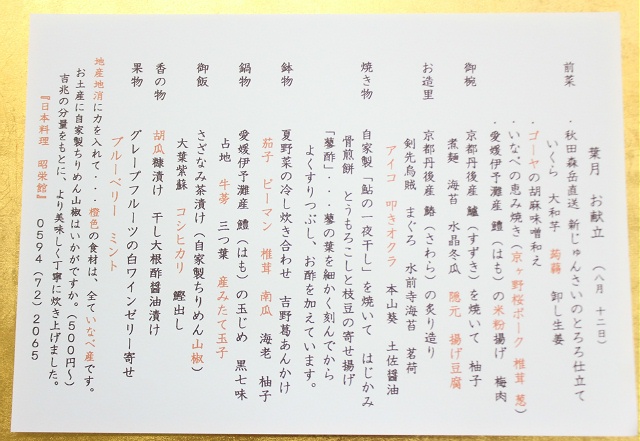 葉月 お献立 (八月 十二日)
前菜
・秋田森岳直送 新じゅんさいのとろろ仕立て
いくら 大和芋 蒟蒻 卸し生姜
・ゴーヤの胡麻味噌和え
・いなべの恵み焼き(京ヶ野桜ポーク 椎茸 葱)
・愛媛伊予灘産 鱧(はも)の米粉揚げ 梅肉
御椀
京都丹後産 鱸(すずき)を焼いて 柚子
煮麺 海苔 水晶冬瓜 隠元 揚げ豆腐
お造里
京都丹後産 鰆(さわら)の炙り造り
剣先烏賊 まぐろ 水前寺海苔 茗荷
アイコ 叩きオクラ 本山葵 土佐醤油
焼き物
自家製「鮎の一夜干し」を焼いて はじかみ
骨煎餅 とうもろこしと枝豆の寄せ揚げ
「蓼酢」・・・蓼の葉を細かく刻んでから
よくすりつぶし、お酢を加えています。
鉢物
夏野菜の冷し炊き合わせ 吉野葛あんかけ
茄子 ピーマン 椎茸 南瓜 海老 柚子
鍋物
愛媛伊予灘産 鱧(はも)の玉じめ 黒七味
占地 牛蒡 三つ葉 産みたて玉子
御飯
さざなみ茶漬け(自家製ちりめん山椒)
大葉紫蘇 コシヒカリ 鰹出し
香の物
胡瓜糠漬け 干し大根酢醤油漬け
果物
グレープフルーツの白ワインゼリー寄せ
ブルーベリー ミント
地産地消に力を入れて・・・橙色の食材は、全ていなべ産です。
お土産に自家製ちりめん山椒はいかがですか。(500円~)
吉兆の分量をもとに、より美味しく丁寧に炊き上げました。
『日本料理 昭栄館』 0594(72)2065